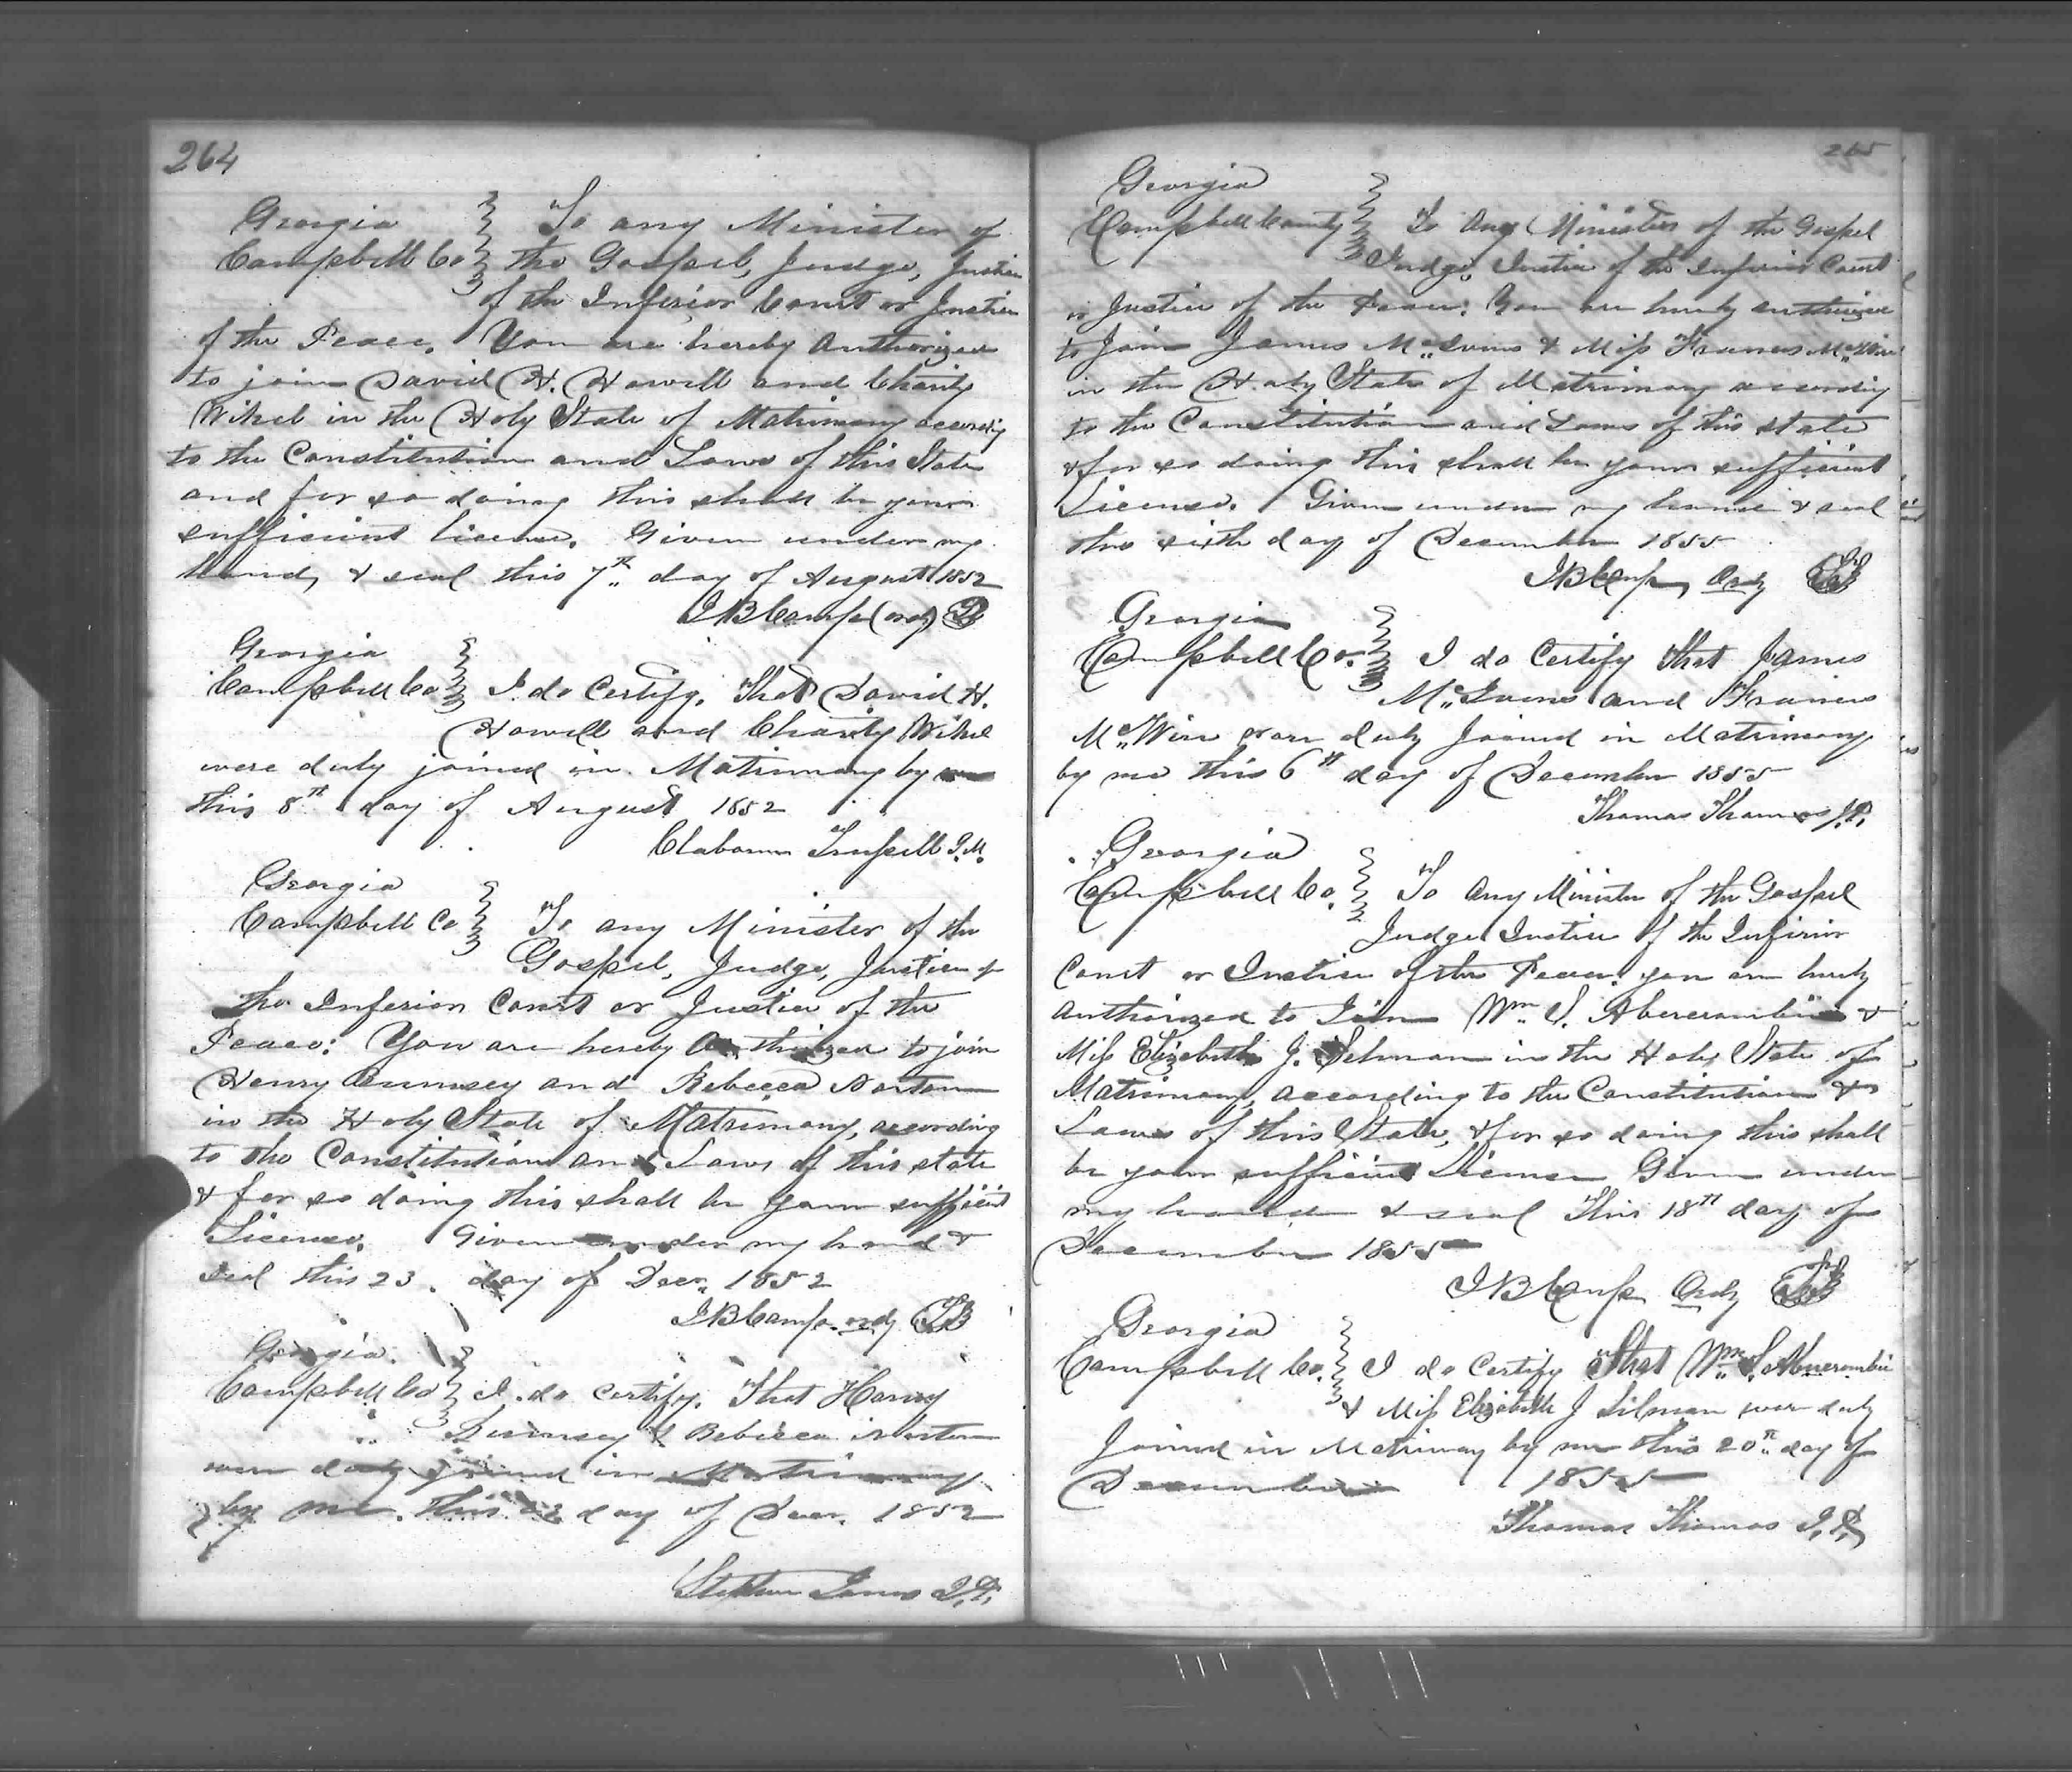 264
Georgia
Campbell Co
To any Minister of
the Gospel, Judge, Justice
of the Inferior Court or Justice
of the Peace. You are hereby Authorized
to join David H. Howell and Charity
Wikel in the Holy State of Matrimony according
to the Constitution and Laws of this State
and for so doing this shall be your
sufficient license. Given under my
hand, & seal this 7th day of August 1852
J B Camp (ordy)
Georgia
Campbell Co
I do Certify, That David H.
Howell and Charity Wikel
were duly joined in Matrimony by me
this 8th day of August 1852
Claborn J.M.
Georgia
Campbell Co
To any Minister of the
Gospel, Judge, Justice of
the Inferior Court or Justice of the
Peace: You are hereby Authorized to join
Henry and Rebecca Norton
in the Holy State of Matrimony, according
to the Constitution and Laws of this state
& for so doing this shall be your sufficient
License. Given under my hand &
seal this 23. day of Decr. 1852
J B Camp ordy
Georgia
Campbell Co
I do certify, That Henry
& Rebecca Norton
were duly joined in Matrimony
by me this 23 day of Decr. 1852
Stephen Jones J.P.
265
Georgia
Campbell County
To Any Minister of the Gospel
Judge, Justice of the Inferior Court
or Justice of the Peace: You are hereby authorized
to Join James & Miss Frances
in the Holy State of Matrimony according
to the Constitution and Laws of this state
& for so doing this shall be your sufficient
License. Given under my hand & seal
this sixth day of December 1855
J B Camp, Ordy
Georgia
Campbell Co.
I do Certify That James
and Frances
McWire were duly Joined in Matrimony
by me this 6th day of December 1855
Thomas Thomas J.P.
Georgia
Campbell Co.
To Any Minister of the Gospel
Judge Justice of the Inferior
Court or Justice of the Peace. you are hereby
Authorized to Join Wm. S. Abercrombie &
Miss Elizabeth J. Selman in the Holy State of
Matrimony, according to the Constitution &
Laws of this State, & for so doing this shall
be your sufficient License Given under
my hand & seal This 18th day of
December 1855
J B Camp Ordy
Georgia
Campbell Co.
I do Certify That Wm. S. Abercrombie
& Miss Elizabeth J Silman were duly
Joined in Matrimony by me this 20th day of
December 1855
Thomas Thomas J.P.